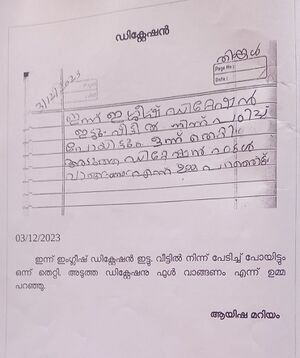 ഡിക്ടേഷൻ
തിങ്കൾ
3/12/2023
Page No.:
Date:
ഇന്ന് ഇംഗ്ലീഷ് ഡിക്ടേഷൻ
ഇട്ടു. വീട്ടിൽ നിന്ന് പഠിച്ച്
പോയിട്ടും ഒന്ന് തെറ്റി.
അടുത്ത ഡിക്ടേഷൻ ഫുൾ
വാങ്ങണം എന്ന് ഉമ്മ പറഞ്ഞു
03/12/2023
ഇന്ന് ഇംഗ്ലീഷ് ഡിക്ടേഷൻ ഇട്ടു. വീട്ടിൽ നിന്ന് പേടിച്ച് പോയിട്ടും
ഒന്ന് തെറ്റി. അടുത്ത ഡിക്ടേഷനു ഫുൾ വാങ്ങണം എന്ന് ഉമ്മ
പറഞ്ഞു.
ആയിഷ മറിയം